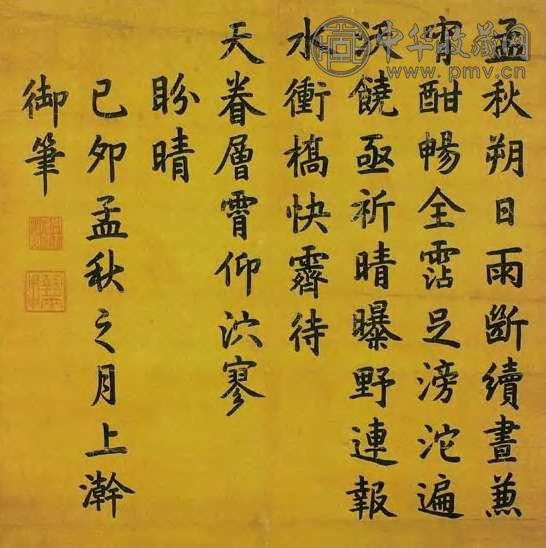 中华收藏网
www.pmv.cn
孟秋朔日雨斷續晝兼
宵酣暢全霑足滂沱遍
沃饒亟祈晴曝野連報
水衝橋快霽待
天眷層霄仰泬寥
盼晴
己卯孟秋之月上澣
御筆